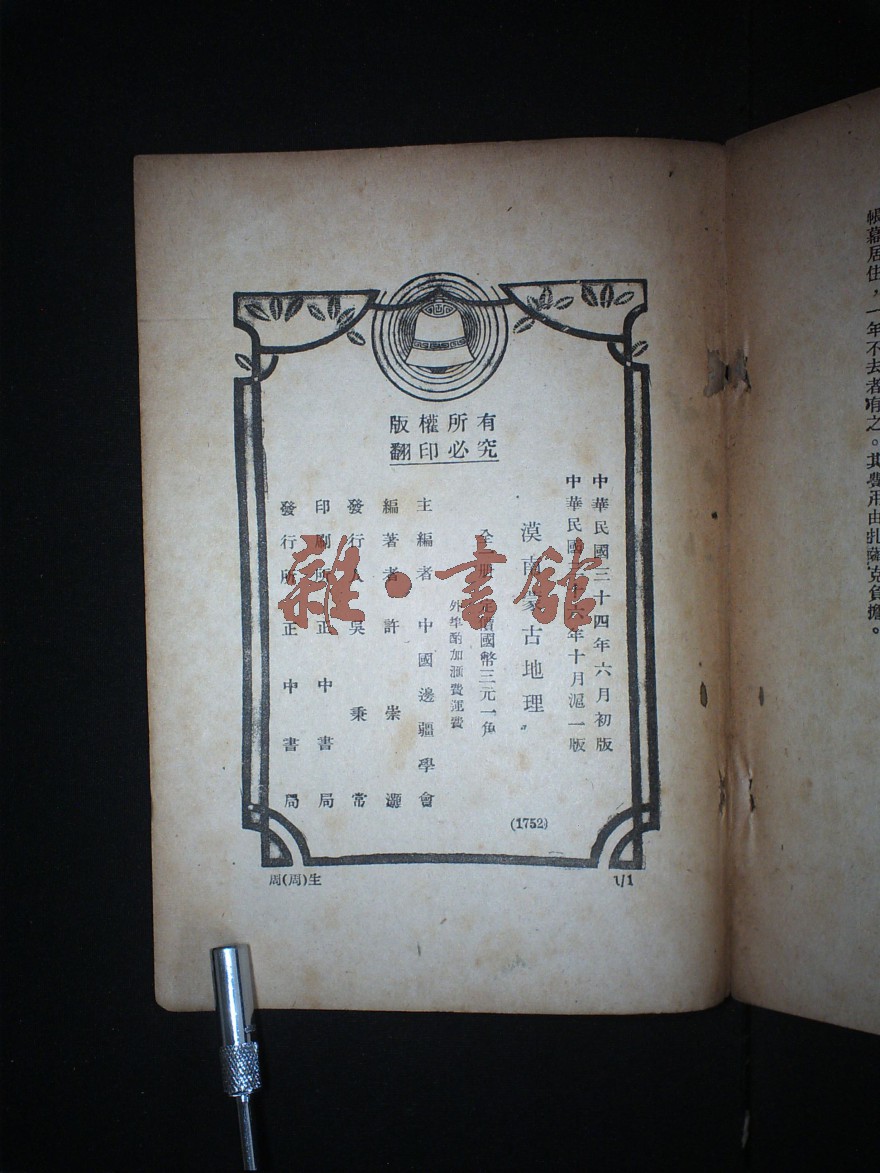 版權所有
翻印必究
中華民國三十四年六月初版
中華民國三十六年十月滬一版
漠南蒙古地理
全一册 定價國幣三元一角
外埠酌加滙費運費
主編者 中國邊疆學會
編著者 許崇灝
發行人 吳秉常
印刷所 正中書局
發行所 正中書局
(1752)
周(周)生
1/1
帳幕居住,一年不去者有之。其費用由扎薩克負擔。
雜·書館